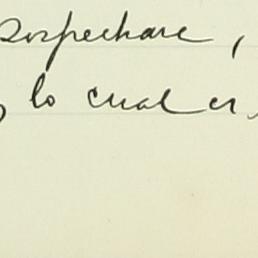 sospechare,
lo cual er